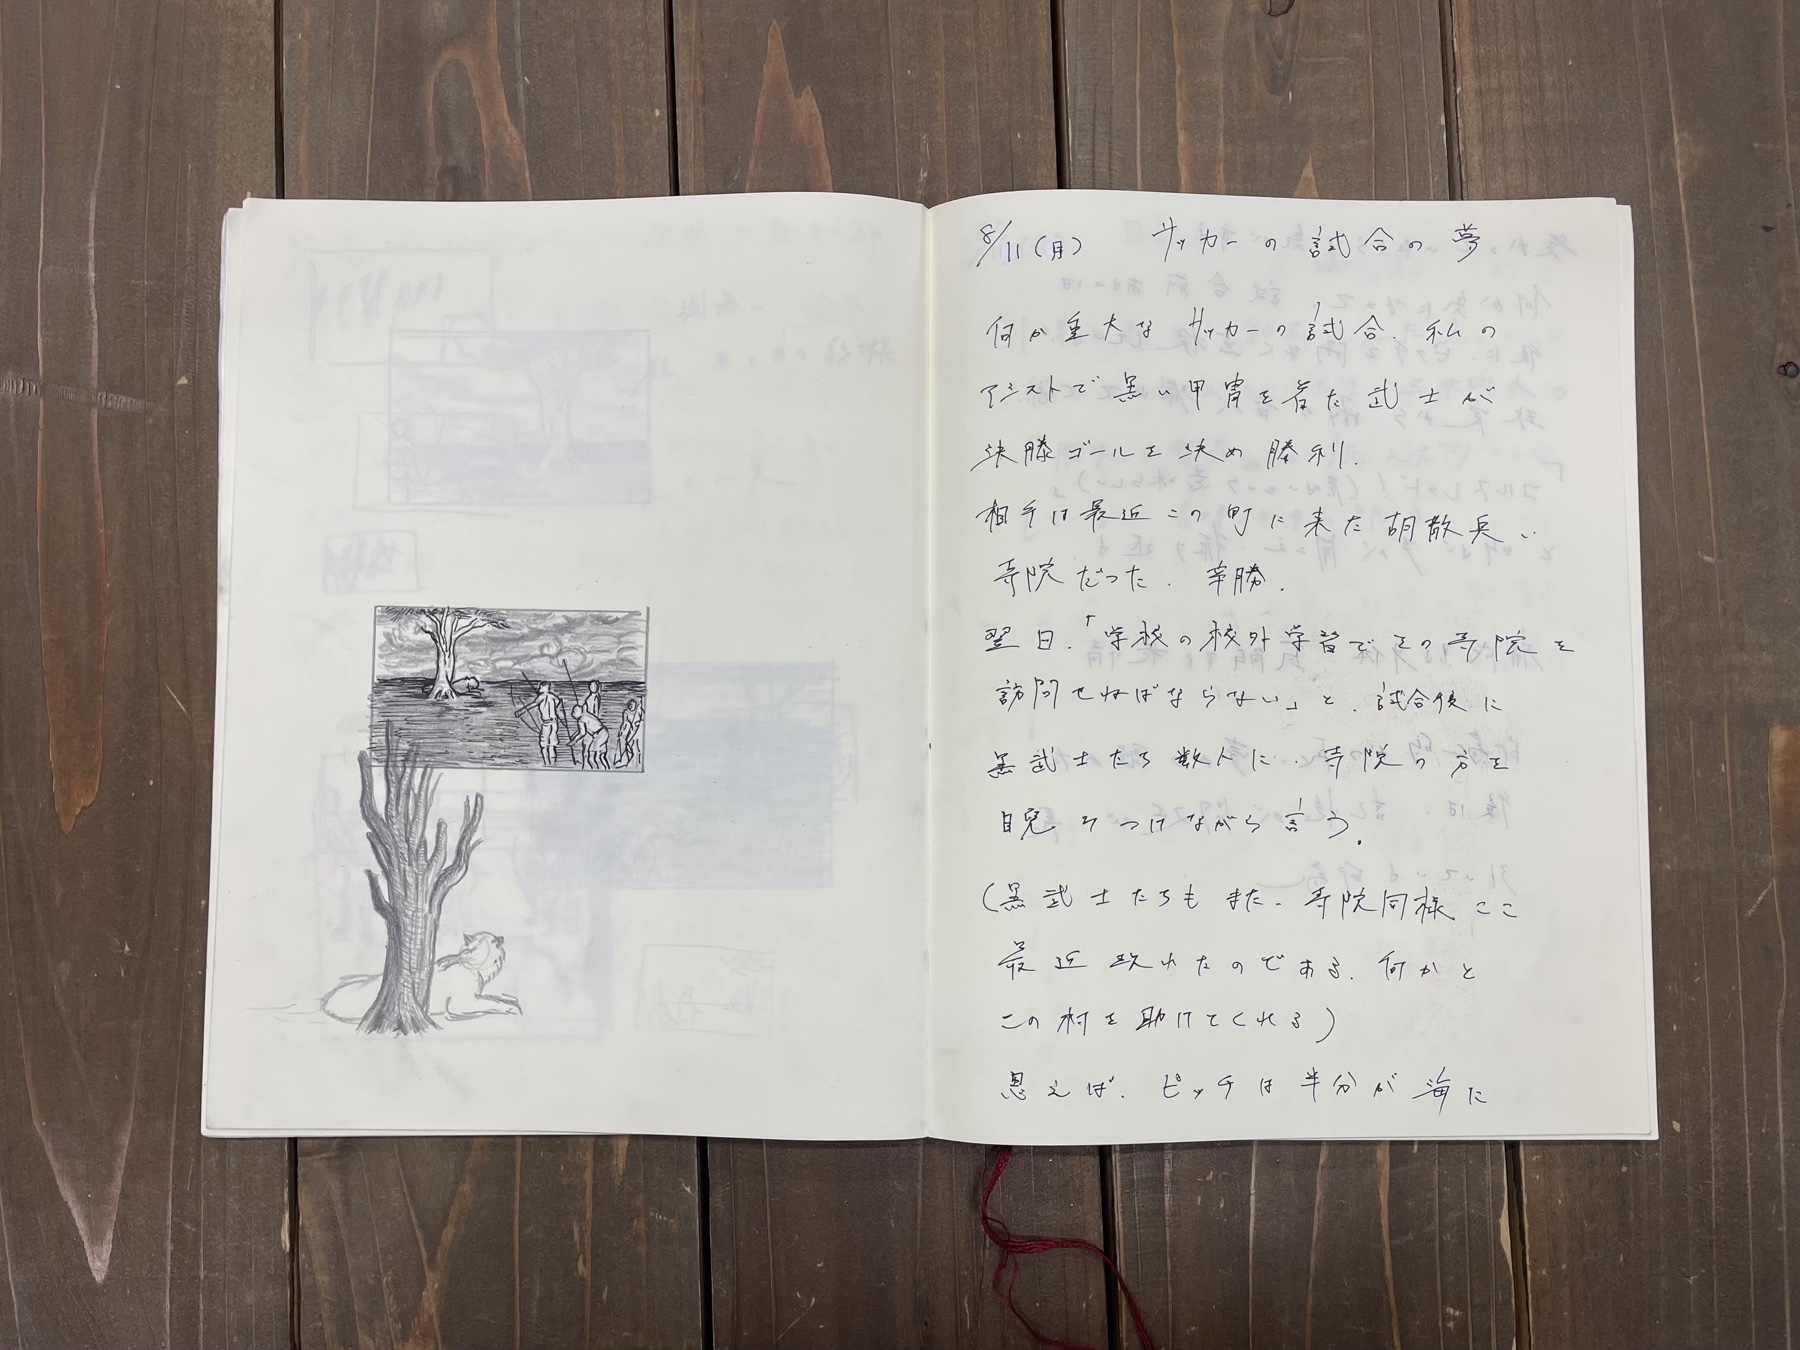 8/11(月) サッカーの試合の夢
何か重大なサッカーの試合. 私の
アシストで黒い甲冑を着た武士が
決勝ゴールを決め勝利.
相手は最近この町に来た胡散臭い
寺院だった. 辛勝.
翌日.「学校の校外学習でその寺院を
訪問せねばならない」と. 試合後に
黒武士たち数人に. 寺院の方を
目配せつけながら言う.
(黒武士たちもまた. 寺院同様 ここ
最近現れたのである. 何かと
この村を助けてくれる)
思えば. ピッチは半分が海に